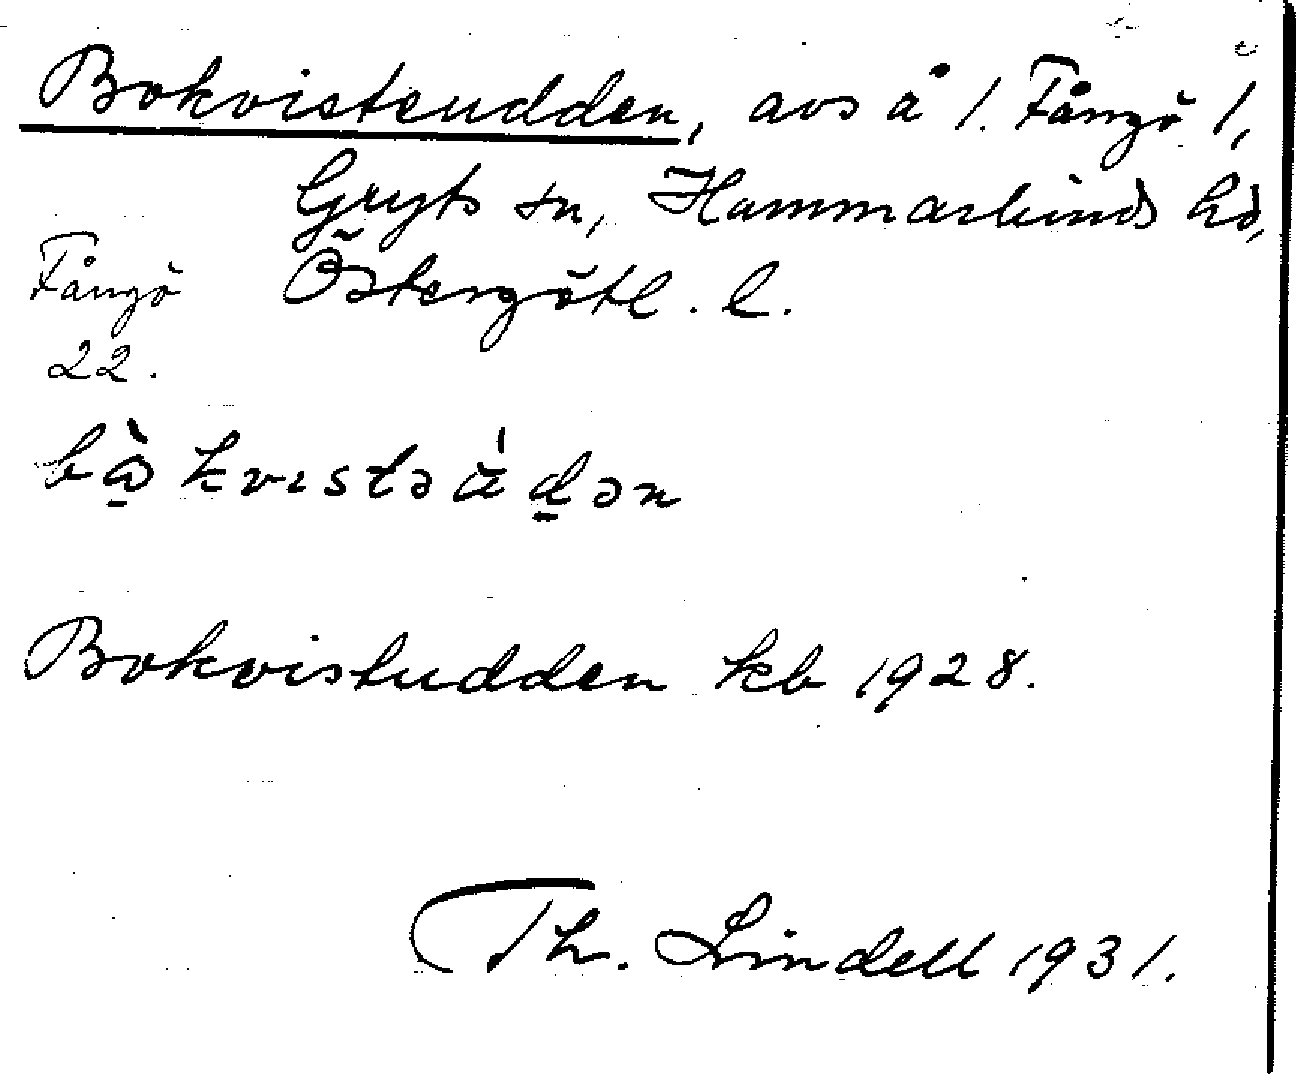 Bokvisteudden, avs å 1. Fångö 1,
Gryts sn, Hammarkinds hd,
Fångö Östergötl. l.
22.
bòkvistəúdən
Bokvistudden kb 1928.
Th. Lindell 1931.